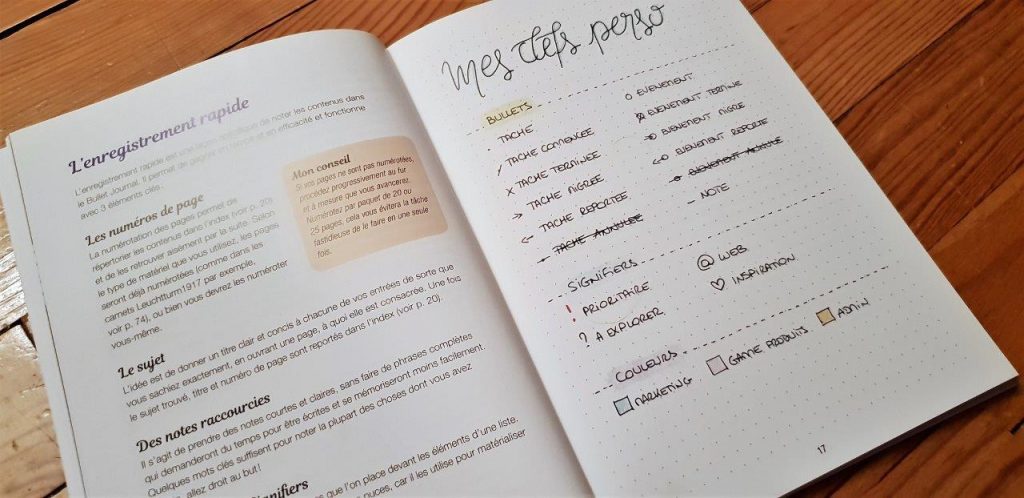 L'enregistrement rapide
L'enregistrement rapide est une façon spécifique de noter les contenus dans
le Bullet Journal. Il permet de gagner en efficacité et fonctionne
avec 3 éléments clés.
Les numéros de page
La numérotation des pages permet de
répertorier les contenus dans l'index (voir p. 20)
et de les retrouver aisément par la suite. Selon
le type de matériel que vous utilisez, les pages
seront déjà numérotées (comme dans les
carnets Leuchtturm1917 par exemple,
voir p. 74), ou bien vous devrez les numéroter
vous-même.
Mon conseil
Si vos pages ne sont pas numérotées,
procédez progressivement au fur
et à mesure que vous avancerez.
Numérotez par paquet de 20 ou
25 pages, cela vous évitera la tâche
fastidieuse de le faire en une seule
fois.
Le sujet
L'idée est de donner un titre clair et concis à chacune de vos entrées de sorte que
vous sachiez exactement, en ouvrant une page, à quoi elle est consacrée. Une fois
le sujet trouvé, titre et numéro de page sont reportés dans l'index (voir p. 20).
Des notes raccourcies
Il s'agit de prendre des notes courtes et claires, sans faire de phrases complètes
qui demanderont du temps pour être écrites et se mémoriseront moins facilement.
Quelques mots clés suffisent pour noter la plupart des choses dont vous avez
allez droit au but !
que l'on place devant les éléments d'une liste.
nuces, car il les utilise pour matérialiser
Mes clefs perso
BULLETS
• TACHE
/ TACHE COMENCEE
X TACHE TERMINEE
> TACHE MIGREE
<- TACHE REPORTEE
• TACHE ANNULEE
O EVENEMENT
EVENEMENT TERMINE
EVENEMENT MIGRE
EVENEMENT REPORTE
EVENEMENT ANNULE
– NOTE
SIGNIFIERS
! PRIORITAIRE
? A EXPLORER
@ WEB
♡ INSPIRATION
COULEURS
MARKETING
GAME PRODUITS
ADMIN
17